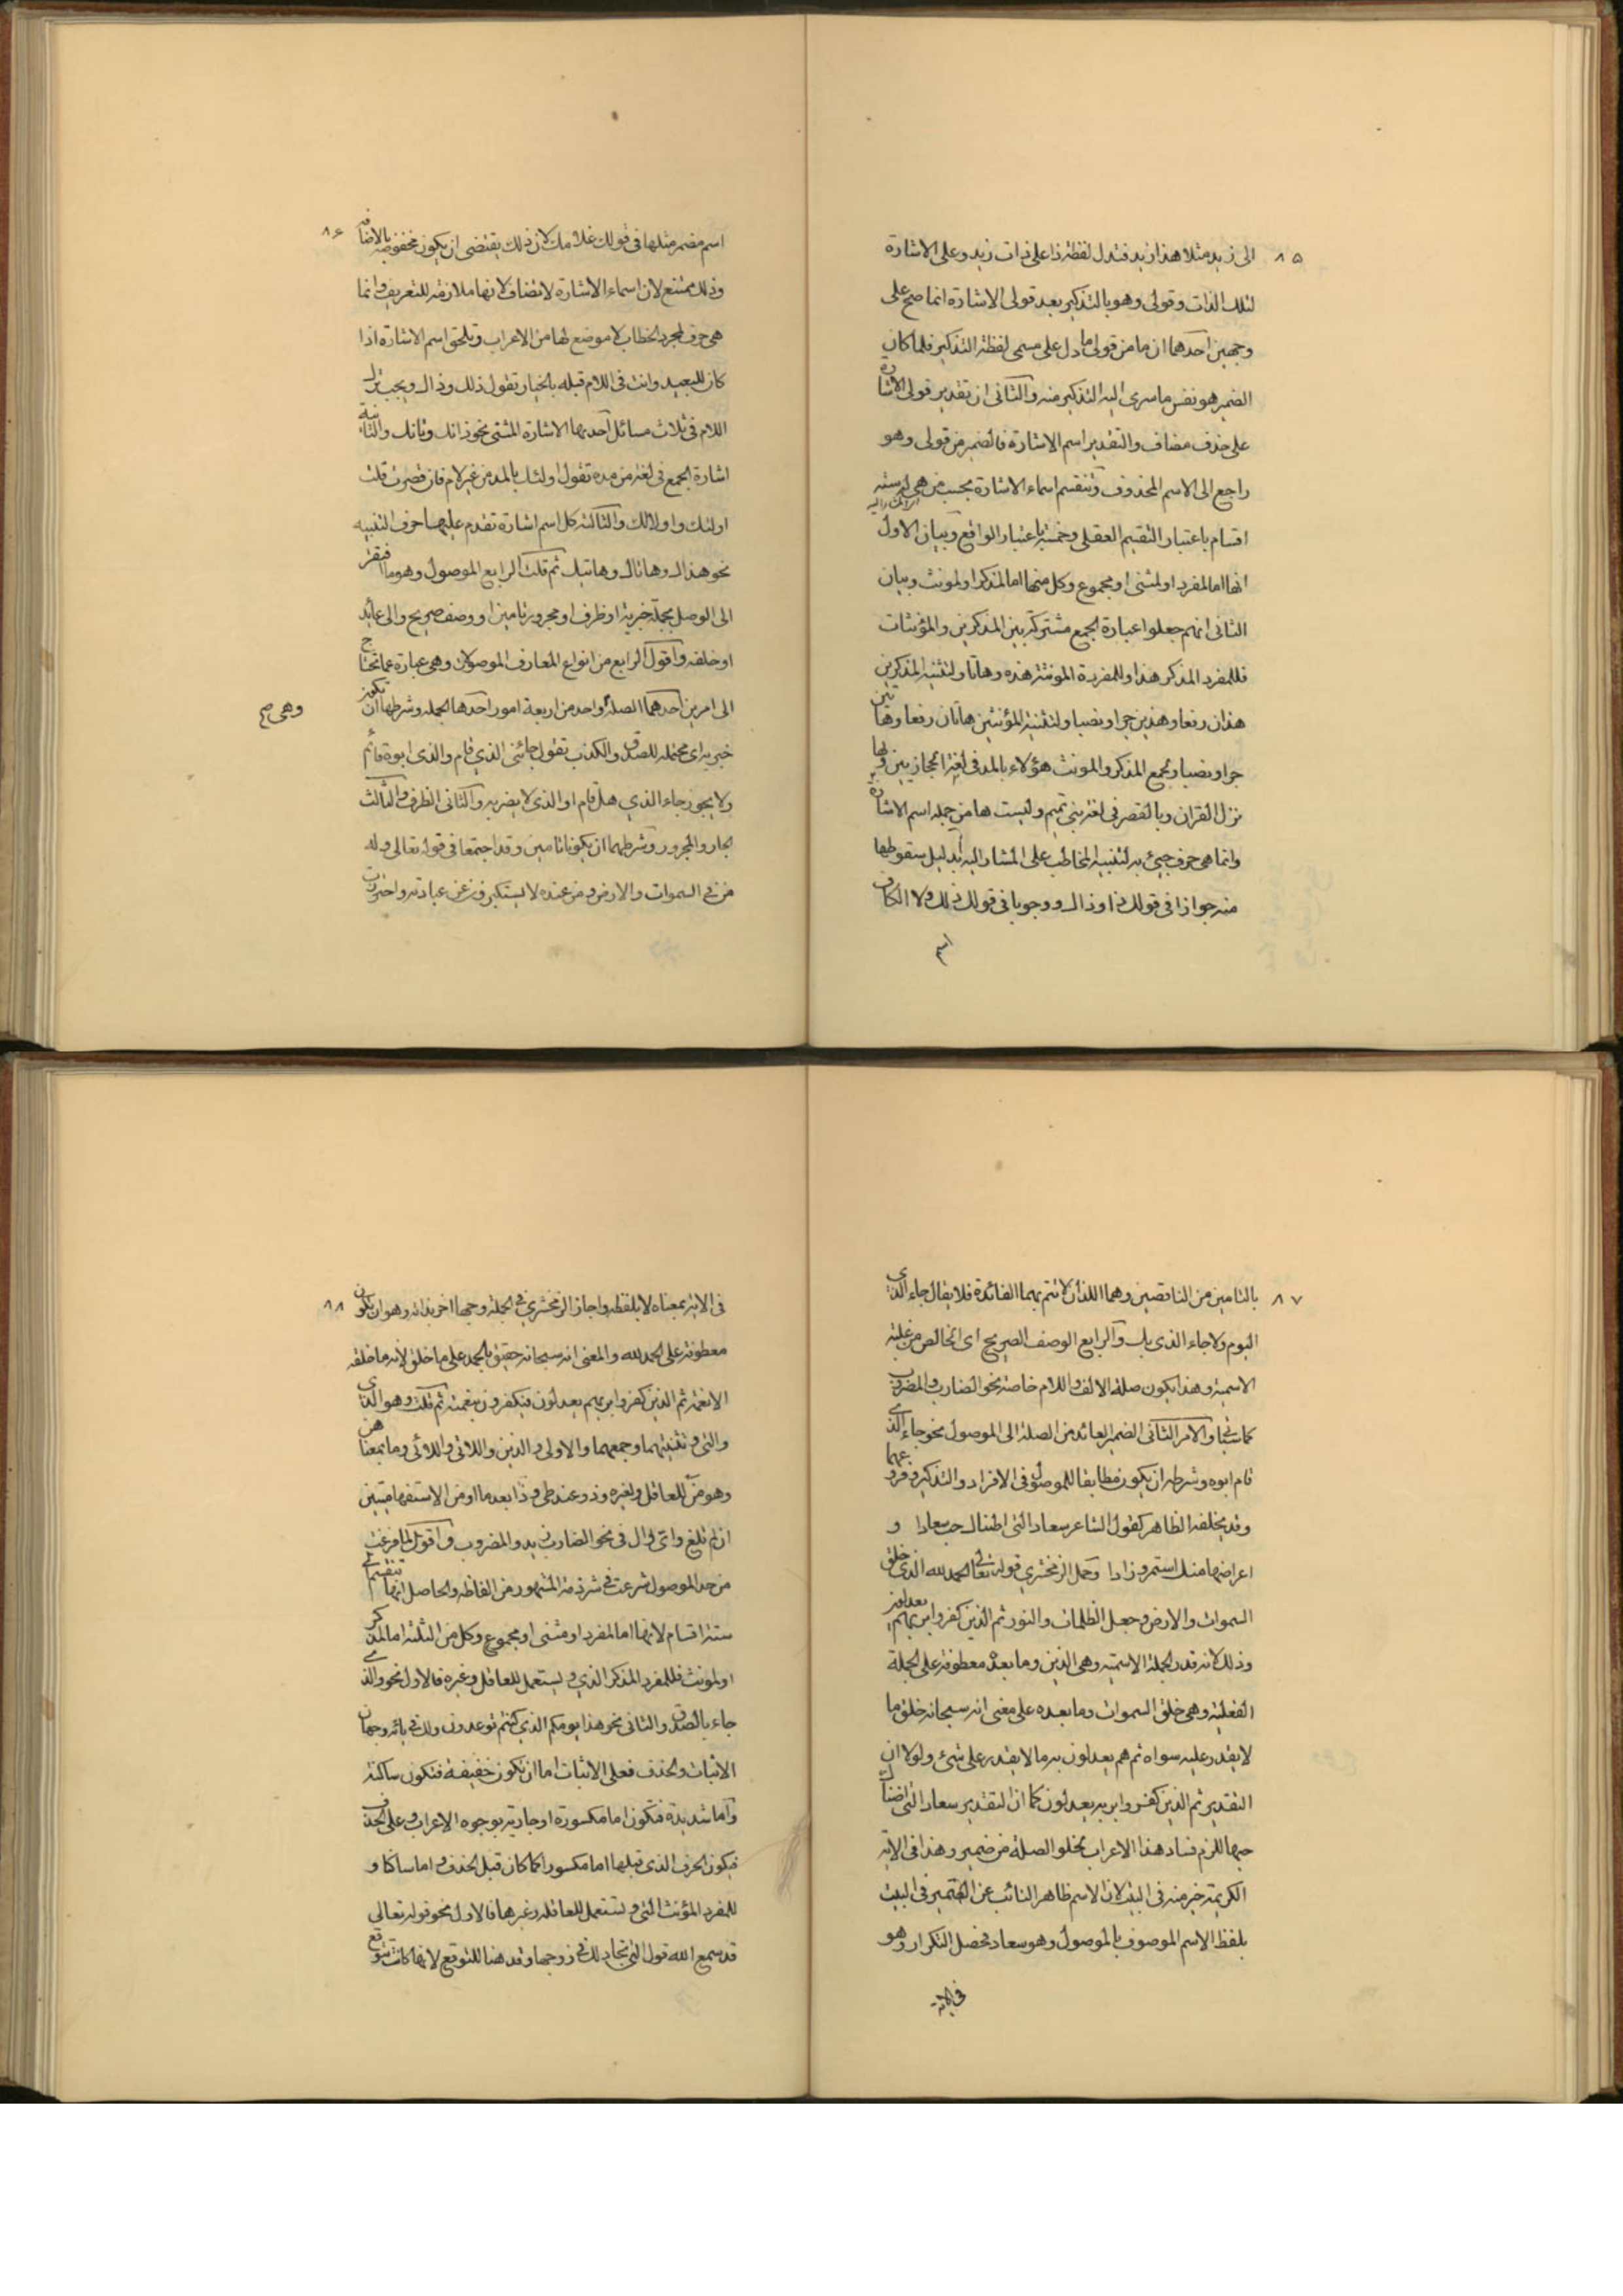 ٨٥
الى زيد مثلا هذا زيد فتدل لفظة ذا على ذات زيد وعلى الاشارة
لتلك الذات وقولى وهو بالتذكير بعد قولى الاشارة انما صح على
وجهين احدهما ان ما من قولى ما دل على مسمى لفظة التذكير فلما كان
الضمير هو نفس ما سرى اليه التذكير منه والثانى ان تقدير قولى الاشارة
على حذف مضاف والتقدير اسم الاشارة فالضمير من قولى وهو
راجع الى الاسم المحذوف وتنقسم اسماء الاشارة بحسب من هى له ستة
اقسام باعتبار التقسيم العقلى وخمسة باعتبار الواقع وبيان الاول
انها اما لمفرد او لمثنى او مجموع وكل منها اما لمذكر او لمونث وبيان
الثانى انهم جعلوا عبارة الجمع مشتركة بين المذكرين والمؤنثات
فللمفرد المذكر هذا وللمفردة المونثة هذه وهاتا ولتثنية المذكرين
هذان رفعا وهذين جرا ونصبا ولتثنية المؤنثين هاتان رفعا وهاتين
جرا ونصبا ولجمع المذكر والمونث هؤلاء بالمد فى لغة الحجازيين وبها
نزل القران وبالقصر فى لغة بنى تميم وليست ها من جملة اسم الاشارة
وانما هى حرف جيئ به لتنبيه المخاطب على المشار اليه بدليل سقوطها
منه جوازا فى قولك ذا وذاك ووجوبا فى قولك ذلك ولا الكاف
اسم
٨٦
اسم مضمر مثلها فى قولك غلامك لان ذلك يقتضى ان يكون مخفوضة بالاضافة
وذلك ممتنع لان اسماء الاشارة لا تضاف لانها ملازمة للتعريف وانما
هى حرف لمجرد الخطاب لا موضع لها من الاعراب وتلحق اسم الاشارة اذا
كان للبعيد وانت فى اللام قبله بالخيار تقول ذلك وذاك ويجب ترك
اللام فى ثلاث مسائل احدها الاشارة المثنى نحو ذانك وتانك والثانية
اشارة الجمع فى لغة من مده تقول اولئك بالمد من غير لام فان قصرت قلت
اولئك واولالك والثالثة كل اسم اشارة تقدم عليها حرف التنبيه
نحو هذاك وهاتاك وهاتيك ثم قلت الرابع الموصول وهو ما افتقر
الى الوصل بجملة خبرية او ظرف او مجرور تامين او وصف صريح والى عايد
او خلفه واقول الرابع من انواع المعارف الموصولات وهى عبارة عما تحتاج
الى امرين احدهما الصلة واحد من اربعة امور احدها الجملة وشرطها ان تكون
وهى صح
خبرية اى محتملة للصدق والكذب تقول جائنى الذي قام والذى ابوه قائم
ولا يجوز جاء الذي هل قام او الذى لا يضربه والثانى الظرف والثالث
الجار والمجرور وشرطهما ان يكونا تامين وقد اجتمعا فى قوله تعالى وله
من في السموات والارض ومن عنده لا يستكبرون عن عبادته واحترزت
٨٧
بالتامين من الناقصين وهما اللذان لا تتم بهما الفائدة فلا يقال جاء الذى
اليوم ولا جاء الذى بك والرابع الوصف الصريح اى الخالص من غلبة
الاسمية وهذا يكون صلة الالف واللام خاصة نحو الضارب والمضروب
كما سيأتى والامر الثانى الضمير العائد من الصلة الى الموصول نحو جاء الذي
قام ابوه وشرطه ان يكون مطابقا للموصول فى الافراد والتذكير وفروعهما
وقد يخلفه الظاهر كقول الشاعر سعاد التى اضناك حب سعادا و
اعراضها منك استمر وزادا وحمل الزمخشري قوله تعالى الحمد لله الذى خلق
السموات والارض وجعل الظلمات والنور ثم الذين كفروا بربهم يعدلون
وذلك لانه قدر الجملة الاسمية وهى الذين وما بعده معطوفة على الجملة
الفعلية وهى خلق السموات وما بعده على معنى انه سبحانه خلق ما
لا يقدر عليه سواه ثم هم يعدلون به ما لا يقدر على شئ ولولا ان
التقدير ثم الذين كفروا به يعدلون كما ان التقدير سعاد التى اضناك
حبها للزم فساد هذا الاعراب لخلو الصلة من ضمير وهذا فى الاية
الكريمة خير منه فى البيت لان الاسم ظاهر النائب عن الضمير فى البيت
بلفظ الاسم الموصوف بالموصول وهو سعاد فحصل التكرار وهو
فى الاية
٨٨
فى الاية بمعناه لا بلفظه واجاز الزمخشري فى الجملة وجها اخر بدأ به وهو ان يكون
معطوفة على الحمد لله والمعنى انه سبحانه حقيق بالحمد على ما خلق لانه ما خلقه
الا نعمة ثم الذين كفروا بربهم يعدلون فيكفرون بنعمته ثم قلت وهو الذى
والتى وتثنيتهما وجمعهما والاولى والذين واللاتى واللائى وما بمعناهن
وهو من للعاقل ولغيره وذو عند طى وذا بعد ما او من الاستفهاميتين
ان لم تلغ واى وال فى نحو الضارب زيد والمضروب واقول لما فرغت
من حد الموصول شرعت فى سرد المشهور من الفاظه والحاصل انها تنقسم الى
ستة اقسام لانها اما لمفرد او مثنى او مجموع وكل من الثلثة اما لمذكر
او لمونث فللمفرد المذكر الذي ويستعمل للعاقل وغيره فالاول نحو والذي
جاء بالصدق والثانى نحو هذا يومكم الذى كنتم توعدون ولك فى يائه وجهان
الاثبات والحذف فعلى الاثبات اما ان تكون خفيفة فتكون ساكنة
واما شديدة فتكون اما مكسورة او جارية بوجوه الاعراب وعلى الحذف
فيكون الحرف الذى قبلها اما مكسورا كما كان قبل الحذف واما ساكنا و
للمفرد المؤنث التى وتستعمل للعاقلة وغيرها فالاول نحو قوله تعالى
قد سمع الله قول التى تجادلك فى زوجها وقد هنا للتوقع لانها كانت تتوقع